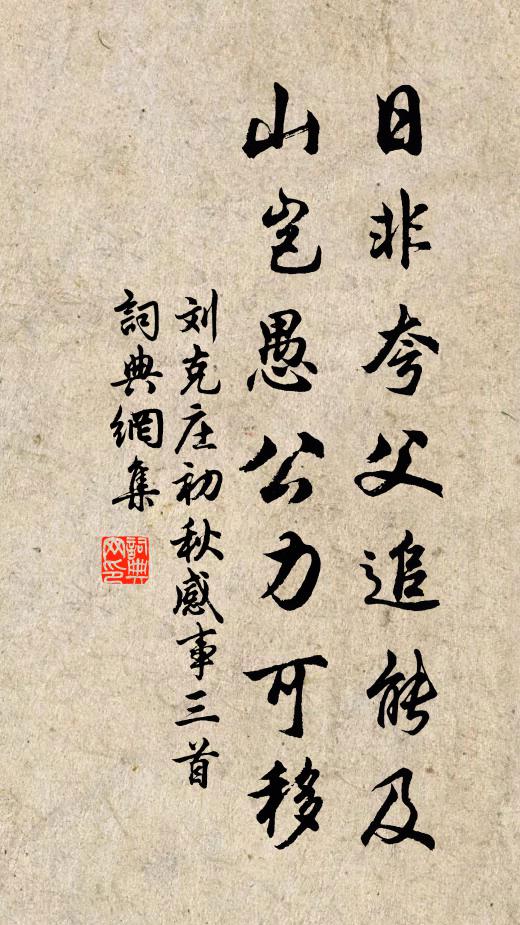 日非夸父追能及
山岂愚公力可移
刘克庄初秋感事三首
詞典網集
詞典网印